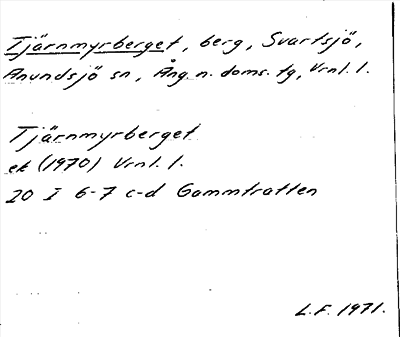 Tjärnmyrberget, berg, Svartsjö,
Anundsjö sn, Ång. n. doms. tg, Vrnl. l.
Tjärnmyrberget
ek (1970) Vrnl. l.
20 I 6-7 c-d Gammtratten
L.F. 1971.